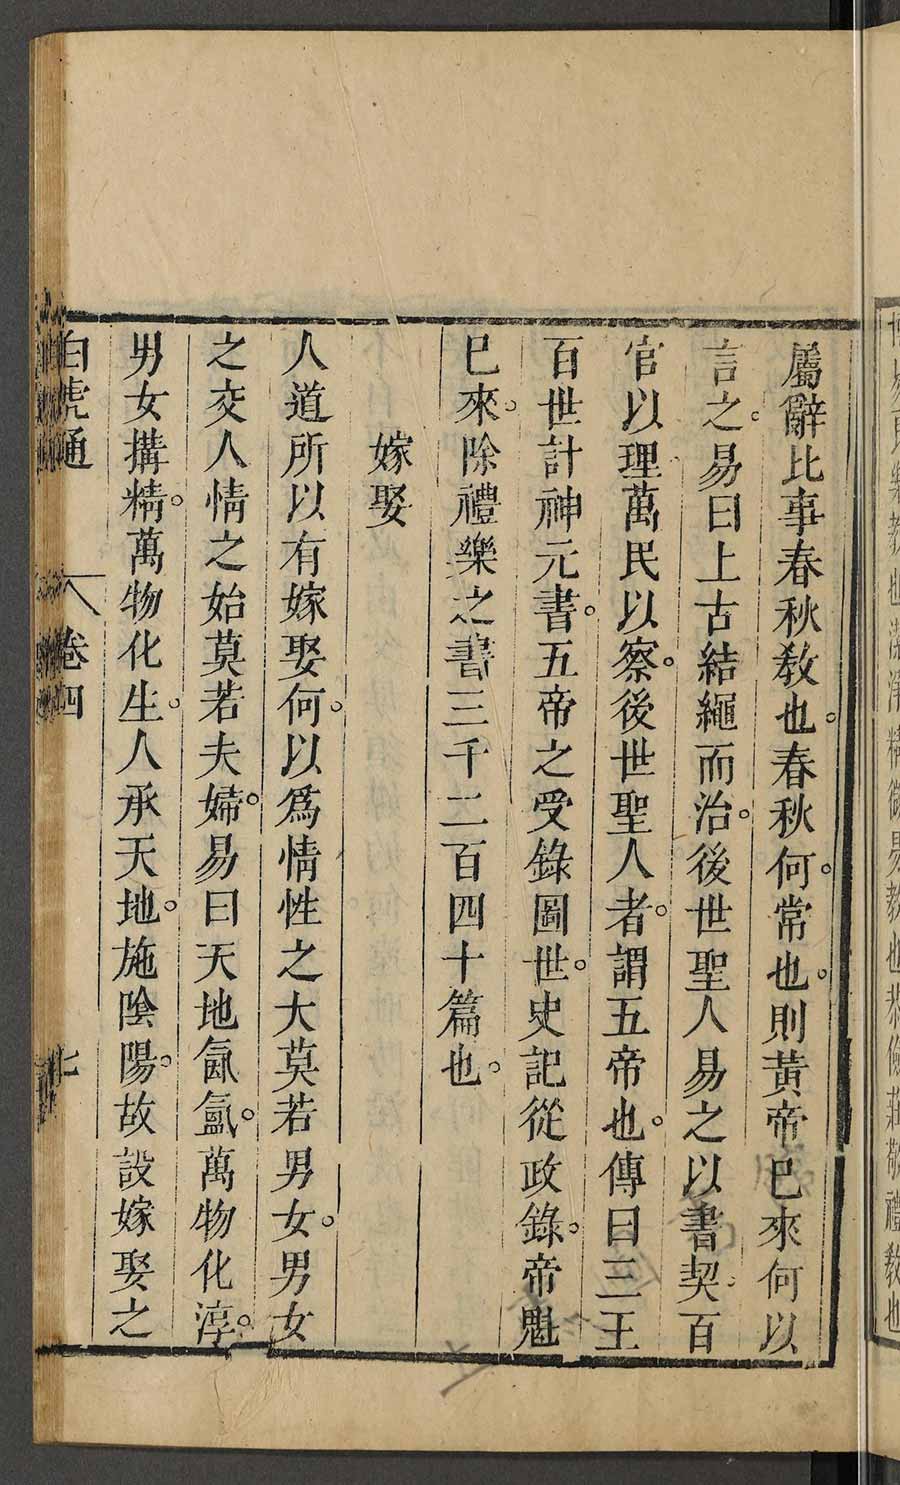 屬辭比事春秋敎也。春秋何。常也。則黃帝巳來何以
言之。易曰上古結繩而治。後世聖人易之以書契百
官以理萬民以察。後世聖人者。謂五帝也。傳曰三王
百世計神元書。五帝之受錄圖世。史記從政錄。帝魁
巳來。除禮樂之書三千二百四十篇也。
嫁娶
人道所以有嫁娶何。以爲情性之大莫若男女。男女
之交人情之始莫若夫婦。易曰天地氤氳。萬物化淳。
男女搆精。萬物化生。人承天地。施陰陽。故設嫁娶之
白虎通 卷四 七